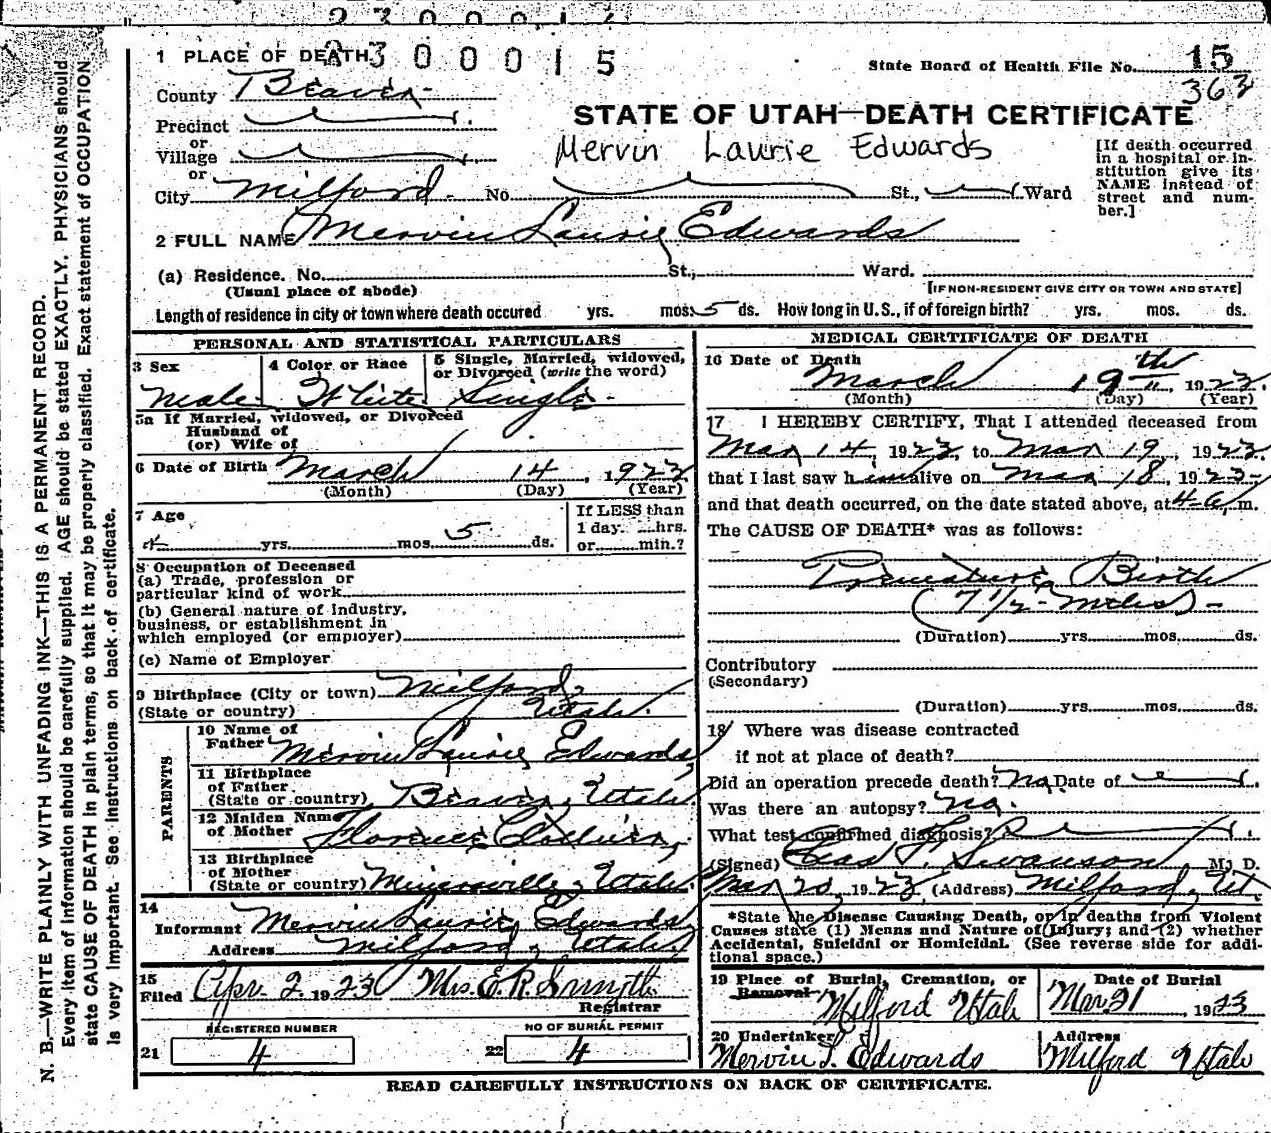 2300014
1 PLACE OF DEATH 2300015
State Board of Health File No. 15
363
County Beaver
STATE OF UTAH—DEATH CERTIFICATE
Precinct
or
Village
or
Mervin Laurie Edwards
[If death occurred in a hospital or institution give its NAME instead of street and number.]
City Milford No. St., Ward
2 FULL NAME Mervin Laurie Edwards
(a) Residence. No. St., Ward.
(Usual place of abode)
[IF NON-RESIDENT GIVE CITY OR TOWN AND STATE]
Length of residence in city or town where death occured yrs. mos. 5 ds. How long in U.S., if of foreign birth? yrs. mos. ds.
PERSONAL AND STATISTICAL PARTICULARS
3 Sex Male
4 Color or Race White
5 Single, Married, widowed, or Divorced (write the word) Single
5a If Married, widowed, or Divorced
Husband of
(or) Wife of
6 Date of Birth March 14, 1923
(Month) (Day) (Year)
7 Age
yrs. mos. 5 ds.
If LESS than
1 day. hrs.
or min.?
8 Occupation of Deceased
(a) Trade, profession or
particular kind of work
(b) General nature of Industry,
business, or establishment in
which employed (or employer)
(c) Name of Employer
9 Birthplace (City or town) Milford,
(State or country) Utah.
PARENTS
10 Name of
Father Mervin Laurie Edwards,
11 Birthplace
of Father.
(State or country) Beaver, Utah.
12 Maiden Name
of Mother Florence
13 Birthplace
of Mother
(State or country) Minersville, Utah.
14
Informant Mervin Laurie Edwards
Address Milford, Utah
15
Filed Apr. 2. 1923 Mrs. E. R. Smyth
Registrar
REGISTERED NUMBER
21 4
NO OF BURIAL PERMIT
22 4
MEDICAL CERTIFICATE OF DEATH
16 Date of Death
March 19th, 1923.
(Month) (Day) (Year)
17 I HEREBY CERTIFY, That I attended deceased from
Mar 14, 1923, to Mar 19, 1923
that I last saw him alive on Mar 18, 1923
and that death occurred, on the date stated above, at m.
The CAUSE OF DEATH* was as follows:
Premature Birth
(7 1/2
(Duration) yrs. mos. ds.
Contributory
(Secondary)
(Duration) yrs. mos. ds.
18 Where was disease contracted
if not at place of death?
Did an operation precede death? No Date of
Was there an autopsy? No.
What test confirmed diagnosis?
(Signed) Chas T. Swanson, M. D.
Mar 20, 1923 (Address) Milford, Ut
*State the Disease Causing Death, or in deaths from Violent
Causes state (1) Menas and Nature of Injury; and (2) whether
Accidental, Suicidal or Homicidal. (See reverse side for addi-
tional space.)
19 Place of Burial, Cremation, or
Removal Milford Utah
Date of Burial
Mar 21, 1923
20 Undertaker
Mervin L. Edwards
Address
Milford Utah
READ CAREFULLY INSTRUCTIONS ON BACK OF CERTIFICATE.
N. B.—WRITE PLAINLY WITH UNFADING INK—THIS IS A PERMANENT RECORD.
Every item of information should be carefully supplied. AGE should be stated EXACTLY. PHYSICIANS should
state CAUSE OF DEATH in plain terms, so that it may be properly classified. Exact statement of OCCUPATION
is very important. See instructions on back of certificate.